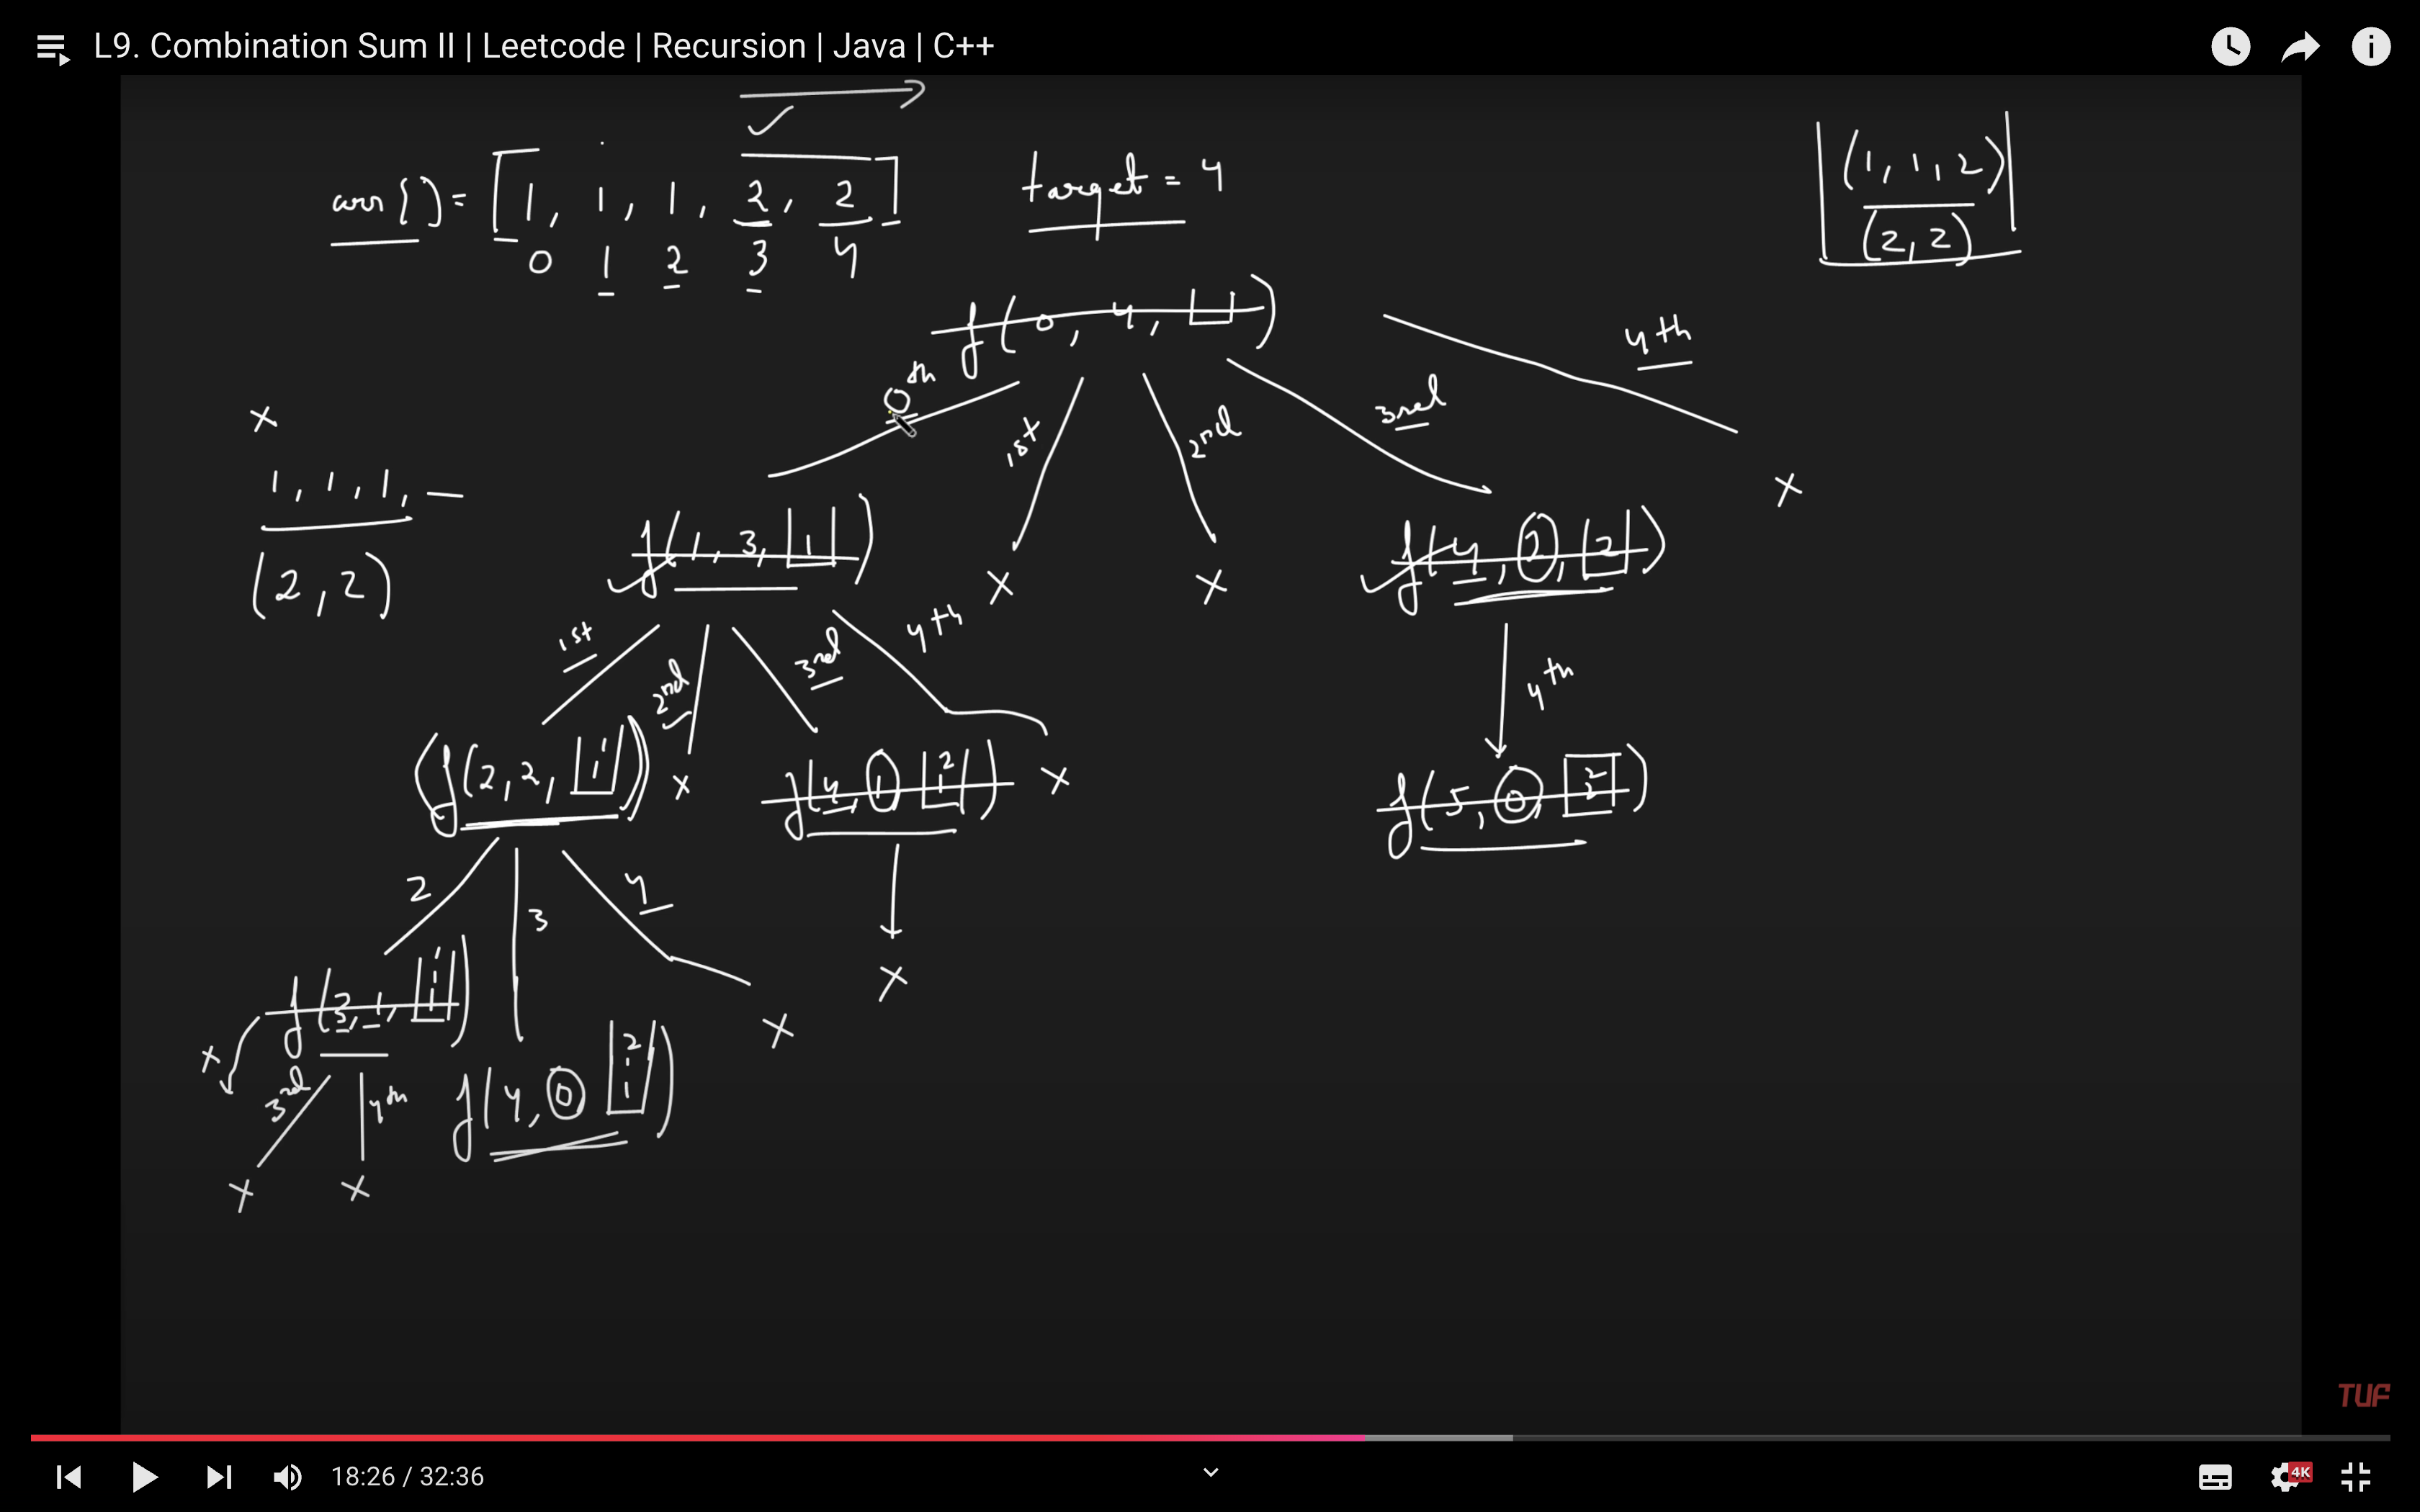 L9. Combination Sum II | Leetcode | Recursion | Java | C++
arr[] = [1, 1, 1, 2, 2] target = 4
0 1 2 3 4
(1, 1, 2)
(2, 2)
f(0, 4, [])
0th 1st 2nd 3rd 4th
x
1, 1, 1, —
(2, 2)
f(1, 3, [1]) x x f(4, 2, [2]) x
1st 2nd 3rd 4th 4th
f(2, 2, [1 1]) x f(4, 1, [1 2]) x f(5, 0, [2 2])
2 3 4
x
f(3, 1, [1 1 1]) x
x 3rd 4th f(4, 0, [2 1 1])
x x
TUF
18:26 / 32:36
4K